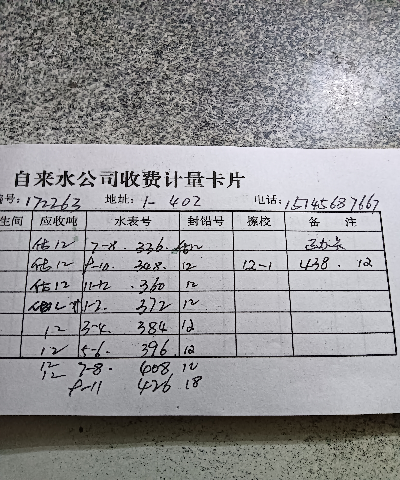 自来水公司收费计量卡片
编号: 172263 地址: 1-402 电话: 15145687667
生间 应收吨 水表号 封铅号 擦校 备注
估12 7-8. 336.
估12 9-10. 348. 12 12-1 438. 12
估12 11-12 360 12
1-2. 372 12
12 3-4. 384 12
12 5-6. 396. 12
12 7-8. 408. 12
12 9-11 426 18